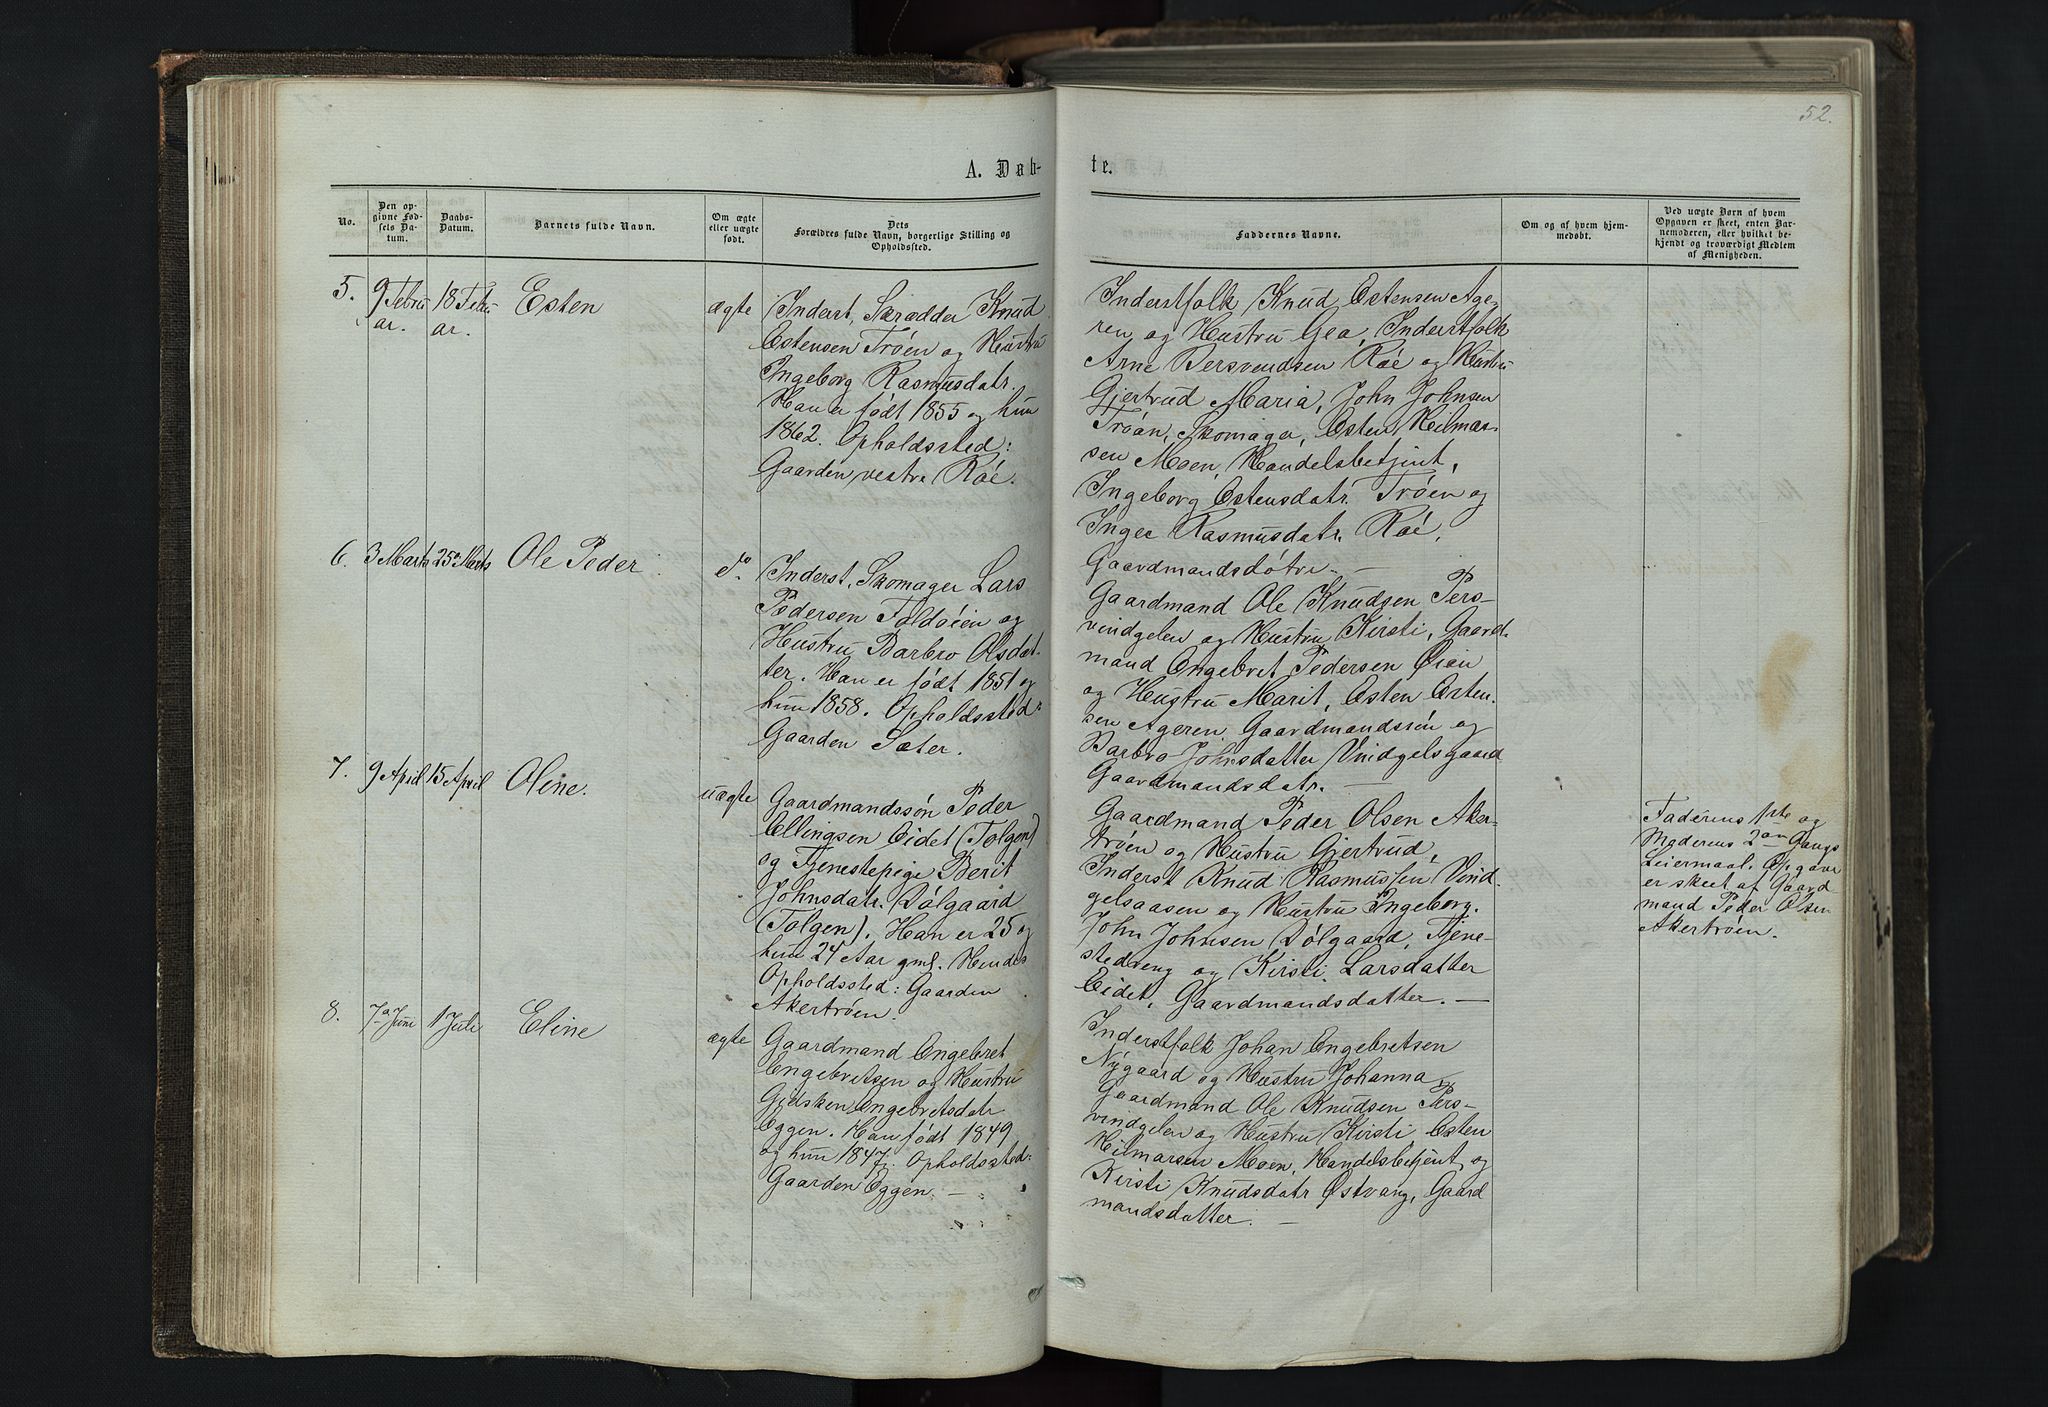 52.
A. Døb-
te.
No.
Den op-
givne Fød-
sels Da-
tum.
Daabs-
Datum.
Barnets fulde Navn.
Om ægte
eller uægte
født.
Dets
Forældres fulde Navn, borgerlige Stilling og
Opholdssted.
Faddernes Navne.
Om og af hvem hjem-
medøbt.
Ved uægte Børn af hvem
Opgaven er skeet, enten Bar-
nemoderen, eller hvilket be-
kjendt og troværdigt Medlem
af Menigheden.
5.
9 Febru
ar.
18 Febru
ar.
Esten
ægte
Inderst, Skrædder Knud
Estensen Trøen og Hustru
Ingeborg Rasmusdatr.
Han er født 1855 og hun
1862. Opholdssted:
Gaarden vestre Røe.
Inderstfolk Knud Estensen Age-
ren og Hustru Gea, Inderstfolk
Arne Bersvendsen Røe og Hustru
Gjertrud Maria, John Johnsen
Trøan, Skomager, Esten Heilmar-
sen Moen, Handelsbetjent,
Ingeborg Estensdatr. Trøen og
Inger Rasmusdatr. Røe,
Gaardmandsdøtre. —
6.
3 Marts
25de Marts
Ole Peder
do
Inderst, Skomager Lars
Pedersen Foldøien og
Hustru Barbro Olsdat-
ter. Han er født 1851 og
hun 1858. Opholdssted:
Gaarden Sæter.
Gaardmand Ole Knudsen Pers-
vindgelen og Hustru Kirsti, Gaard-
mand Engebret Pedersen Øien
og Hustru Marit, Esten Esten-
sen Ageren, Gaardmandssøn og
Barbro Johnsdatter Vindgelsgaard
Gaardmandsdatr. —
7.
9 April
15 April
Oline.
uægte
Gaardmandssøn Peder
Ellingsen Eidet (Tolgen)
og Tjenestepige Berit
Johnsdatr. Dølgaard
(Tolgen). Han er 25 og
hun 24 Aar gml. Hendes
Opholdssted: Gaarden
Akertrøen.
Gaardmand Peder Olsen Aker-
trøen og Hustru Gjertrud,
Inderst Knud Rasmussen Vind-
gelsaasen og Hustru Ingeborg.
John Johnsen Dølgaard, Tjene-
stedreng og Kirsti Larsdatter
Eidet, Gaardmandsdatter. —
Faderens 1ste og
Moderens 2den Gangs
Leiermaal. Opgave
er skeet af Gaard
mand Peder Olsen
Akertrøen.
8.
7de Juni
1 Juli
Eline
ægte
Gaardmand Engebret
Engebretsen og Hustru
Gidsken Engebretsdatr
Eggen. Han født 1849
og hun 1847. Opholdssted:
Gaarden Eggen. —
Inderstfolk Johan Engebretsen
Nygaard og Hustru Johanna,
Gaardmand Ole Knudsen Pers-
vindgelen og Hustru Kirsti, Esten
Hilmarsen Moen, Handelsbetjent og
Kirsti Knudsdatr Østvang, Gaard
mandsdatter. —